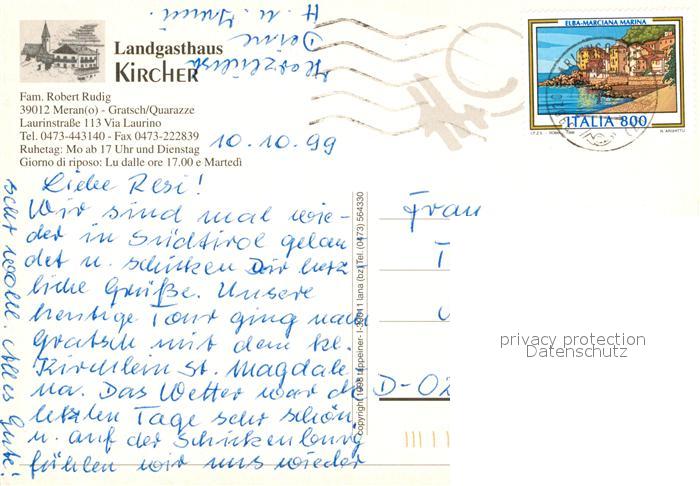 Landgasthaus
KIRCHER
Fam. Robert Rudig
39012 Meran(o) - Gratsch/Quarazze
Laurinstraße 113 Via Laurino
Tel. 0473-443140 - Fax 0473-222839
Ruhetag: Mo ab 17 Uhr und Dienstag
Giorno di riposo: Lu dalle ore 17.00 e Martedì
ELBA-MARCIANA MARINA
ITALIA 800
10.10.99
Liebe Resi!
Wir sind mal wie-
der in Südtirol gelan
det u. schicken Dir herz
liche Grüße. Unsere
heutige Tour ging nach
Gratsch mit dem kl.
Kirchlein St. Magdale-
na. Das Wetter war die
letzten Tage sehr schön
u. auf der Schickenburg
fühlen wir uns wieder
sehr wohl. Alles Gute!
Herzlichst
Deine
H. u.
copyright 1998 Tappeiner- I-39011 lana (bz) Tel. (0473) 564330
Frau
D-02
privacy protection
Datenschutz